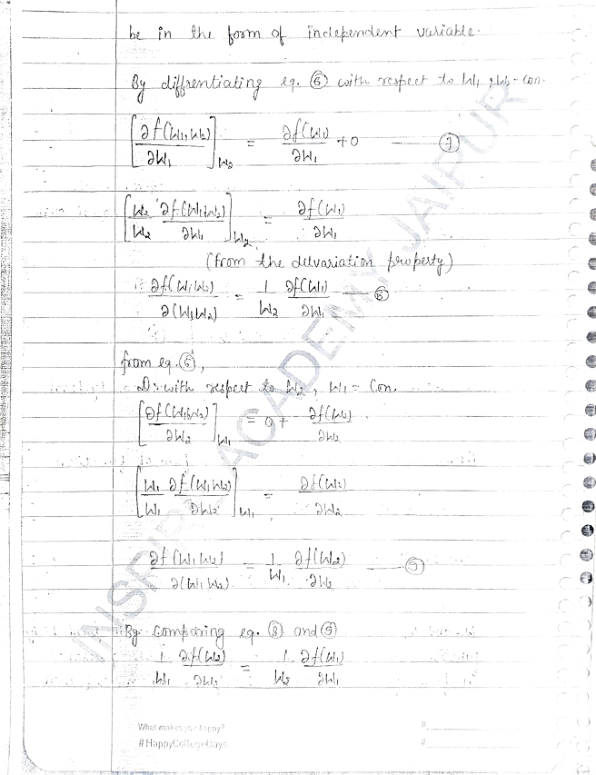 be in the form of independent variable.
By diffrentiating eq. ⑥ with respect to W₁, W₂ = con.
[∂f(W₁,W₂)/∂W₁]W₂ = ∂f(W₁)/∂W₁ + 0 — ⑦
[W₂/W₂ ∂f(W₁W₂)/∂W₁]W₂ = ∂f(W₁)/∂W₁
(from the delvariation property)
∂f(W₁W₂)/∂(W₁W₂) = 1/W₂ ∂f(W₁)/∂W₁ — ⑧
from eq. ⑥,
D. with respect to W₂, W₁ = Con.
[∂f(W₁W₂)/∂W₂]W₁ = 0 + ∂f(W₂)/∂W₂
[W₁/W₁ ∂f(W₁W₂)/∂W₂]W₁ = ∂f(W₂)/∂W₂
∂f(W₁W₂)/∂(W₁W₂) = 1/W₁ ∂f(W₂)/∂W₂ — ⑨
By Comparing eq. ⑧ and ⑨
1/W₁ ∂f(W₂)/∂W₂ = 1/W₂ ∂f(W₁)/∂W₁
What makes you happy?
#HappyCollegeDays
#
#
ACADEMY JAIPUR